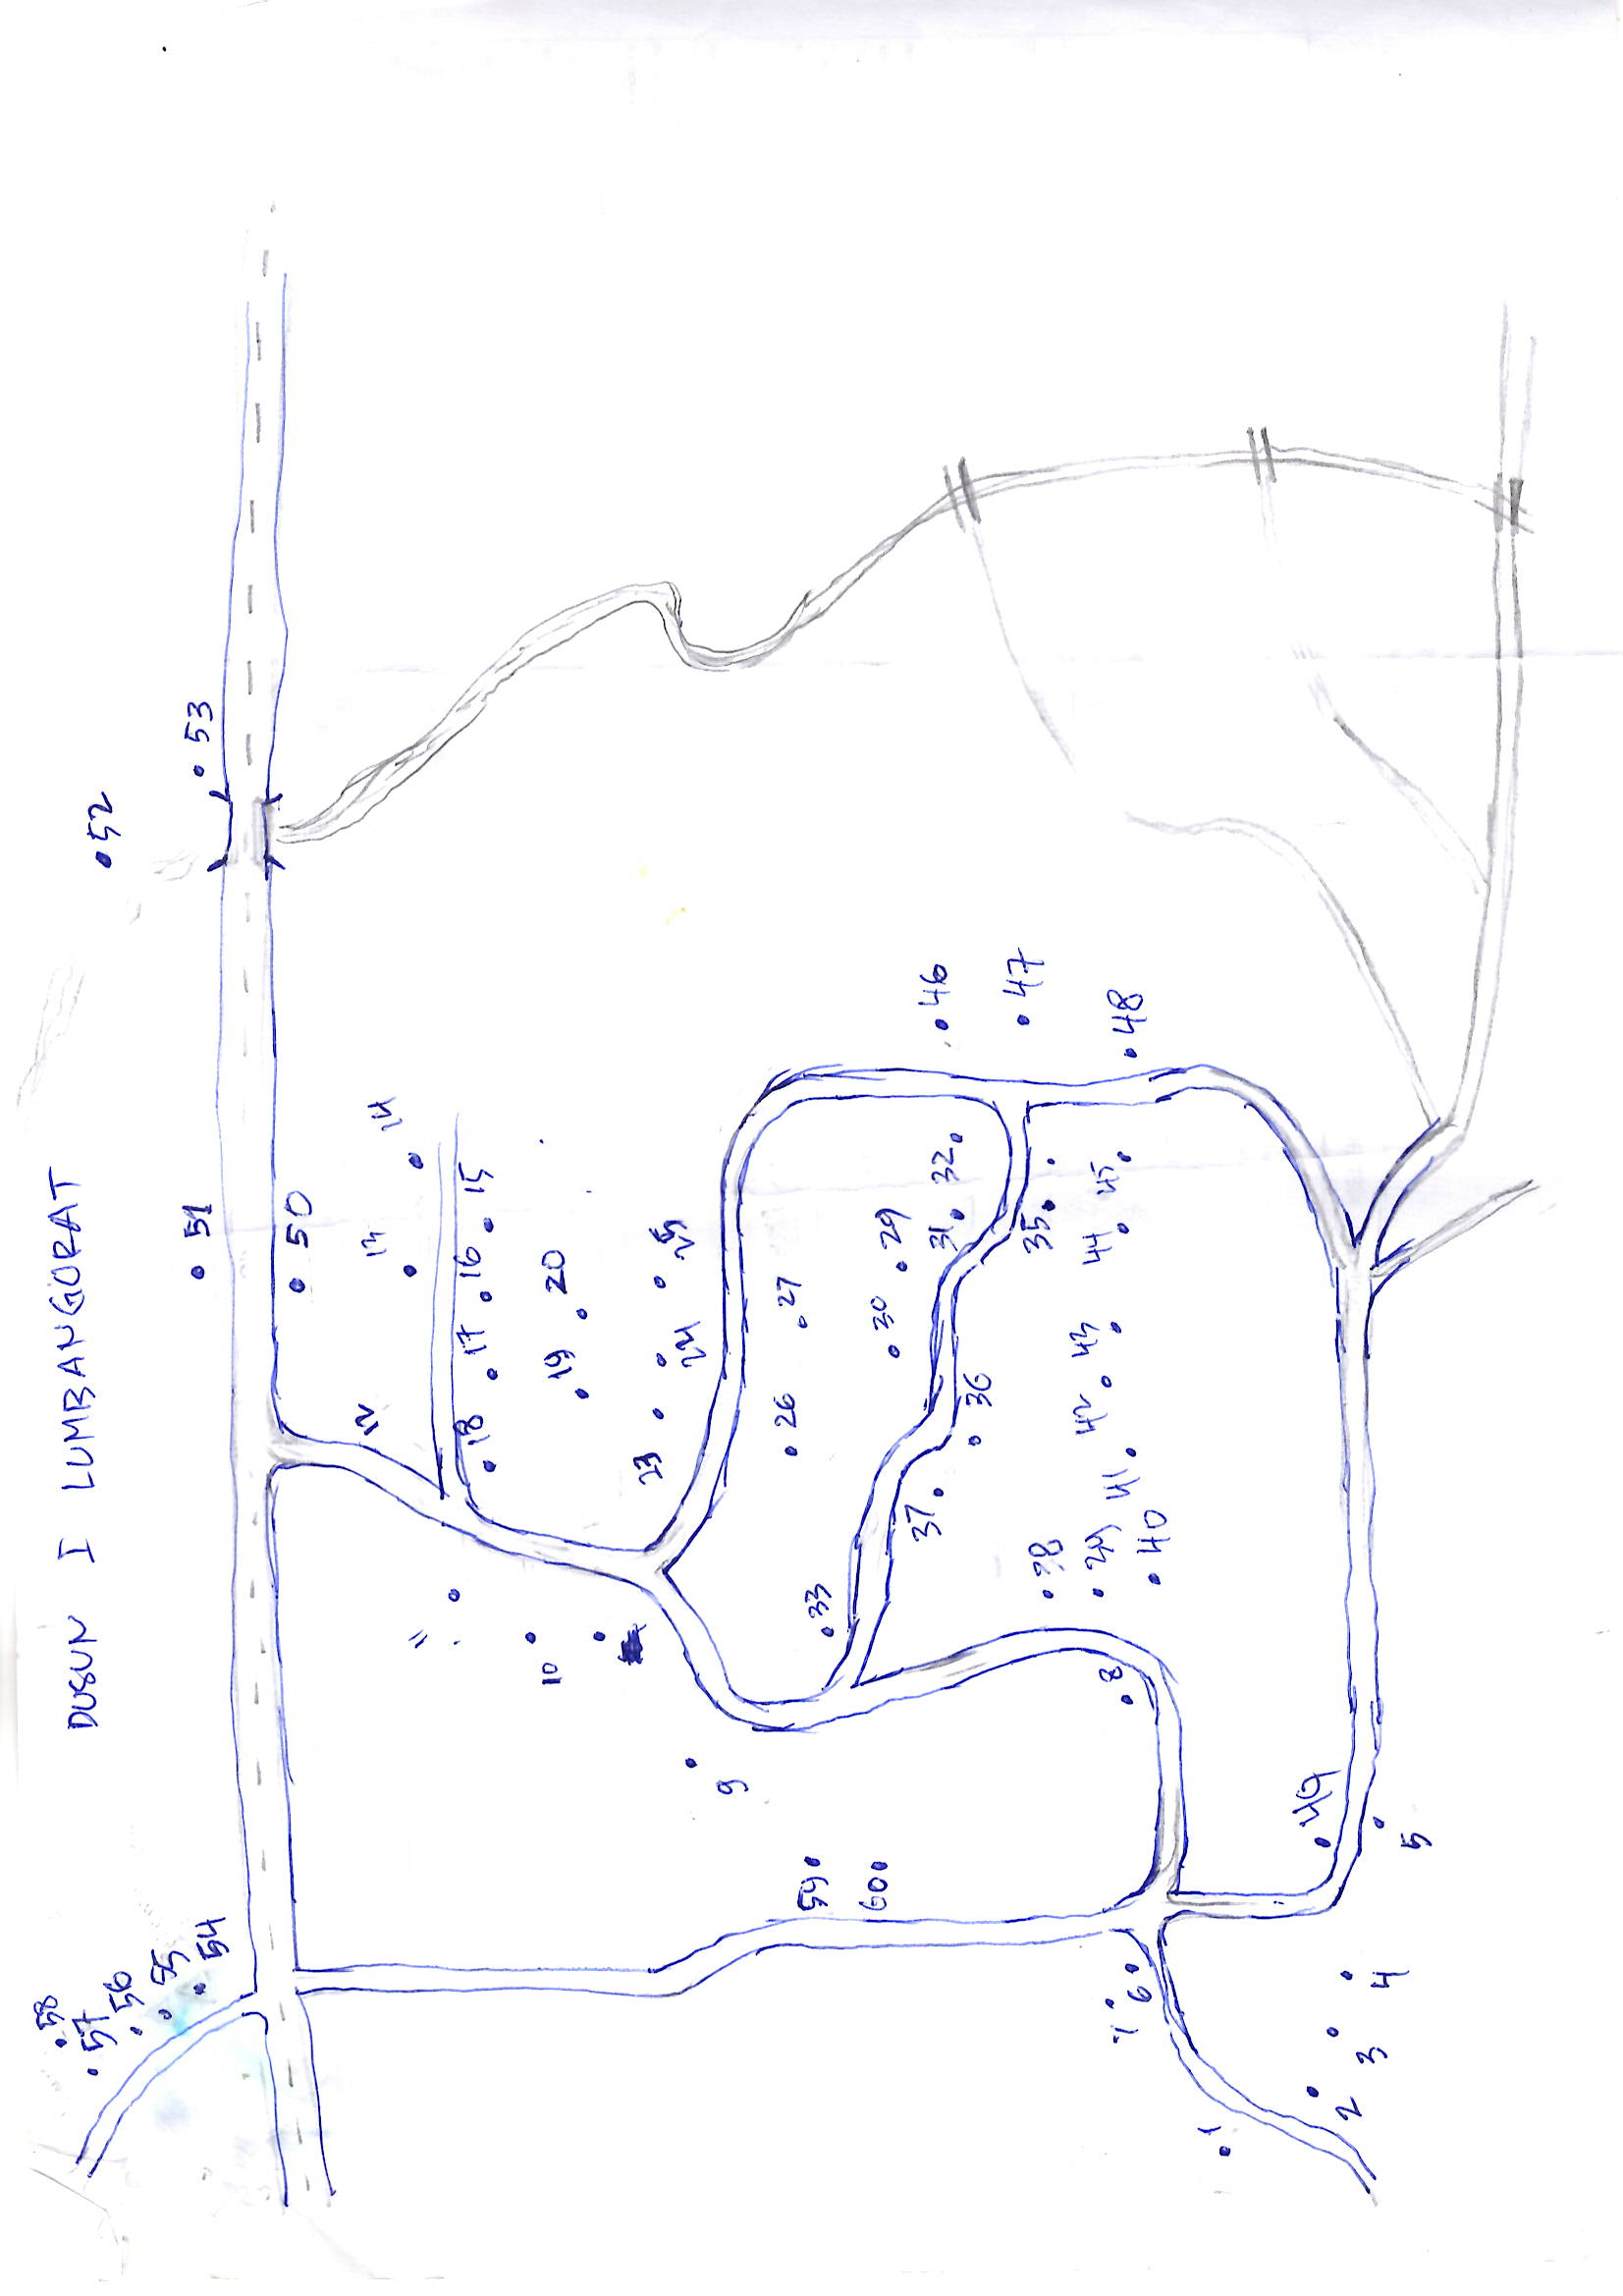 DUSUN I LUMBANGORAT
58
57
56
55
54
52
51
53
50
12
13
14
11
18
17
16
15
10
19
20
23
24
25
9
26
27
59
33
60
30
29
37
31
32
46
36
47
35
38
39
42
43
44
45
41
8
48
7
6
40
1
49
2
3
4
5